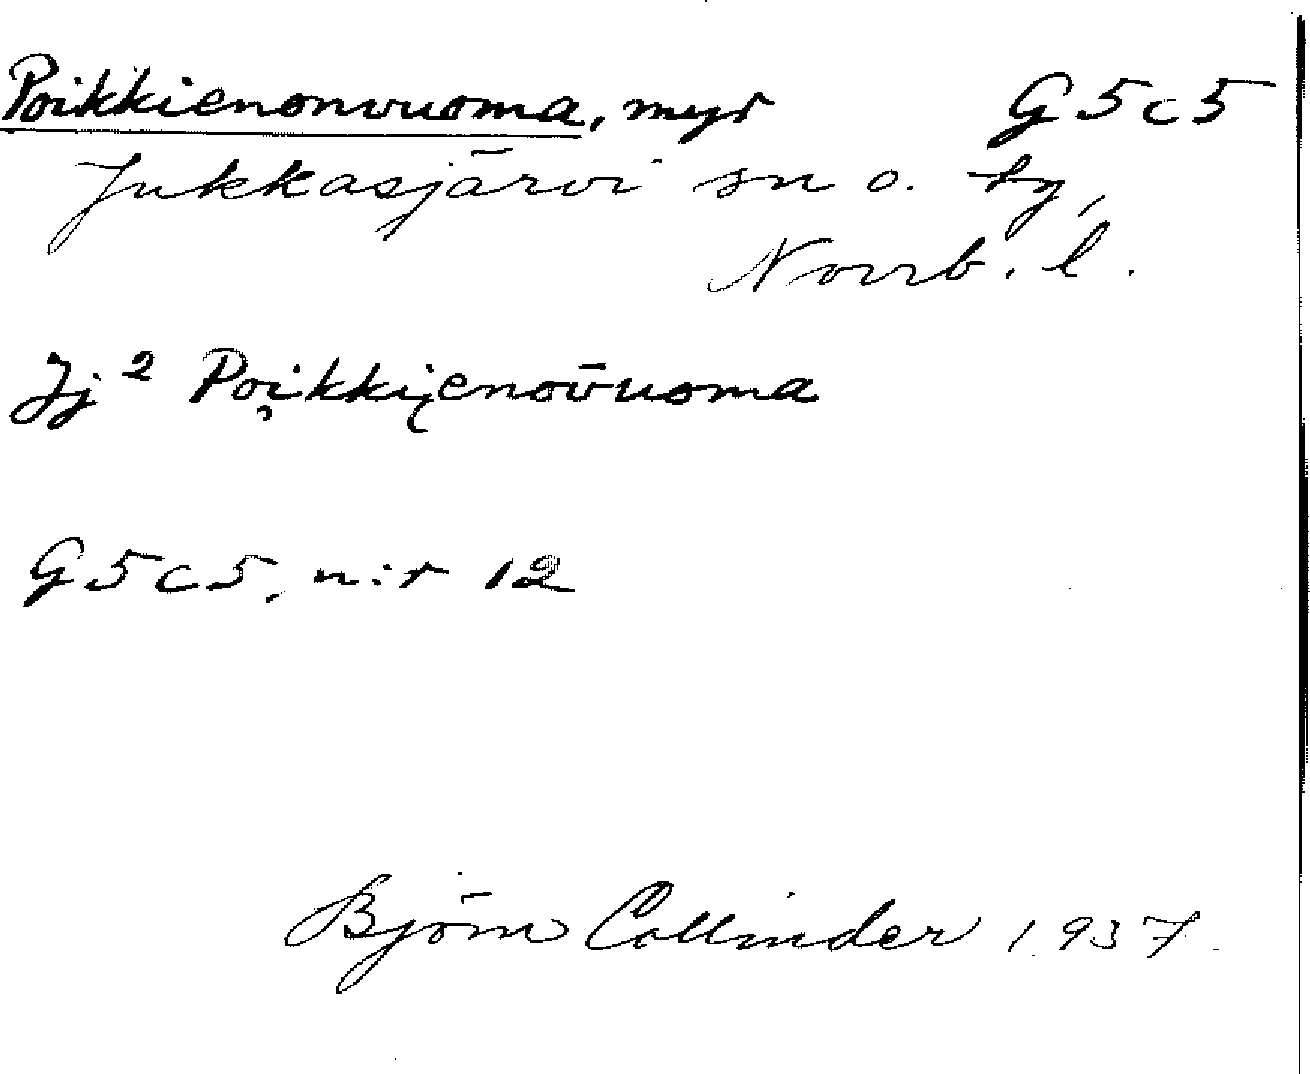 Poikkienonvuoma, myr G5c5
Jukkasjärvi sn o. by,
Norrb. l.
Jj² Poi̯kki̯enov̄uoma
G5c5, n:r 12
Björn Collinder 1937